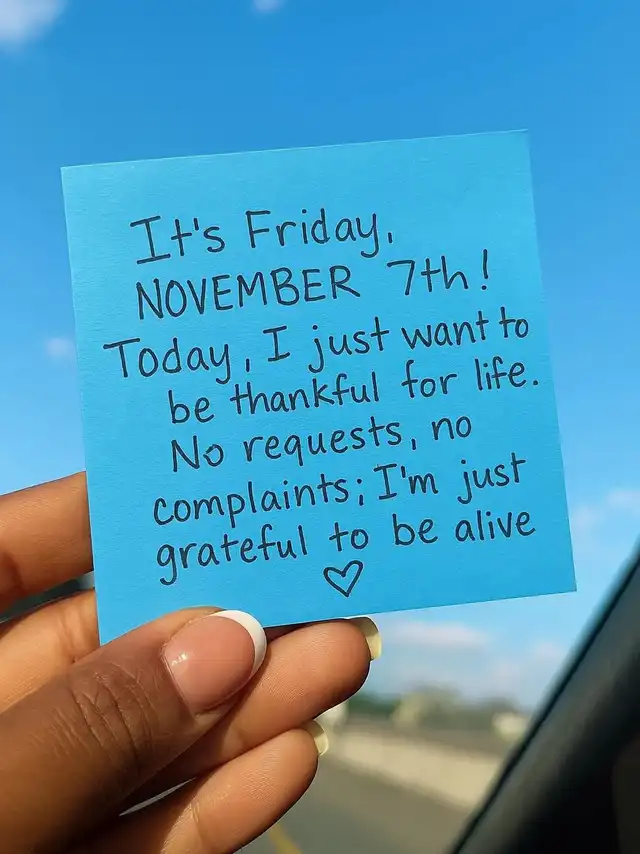 It's Friday,
NOVEMBER 7th!
Today, I just want to
be thankful for life.
No requests, no
complaints; I'm just
grateful to be alive
♡